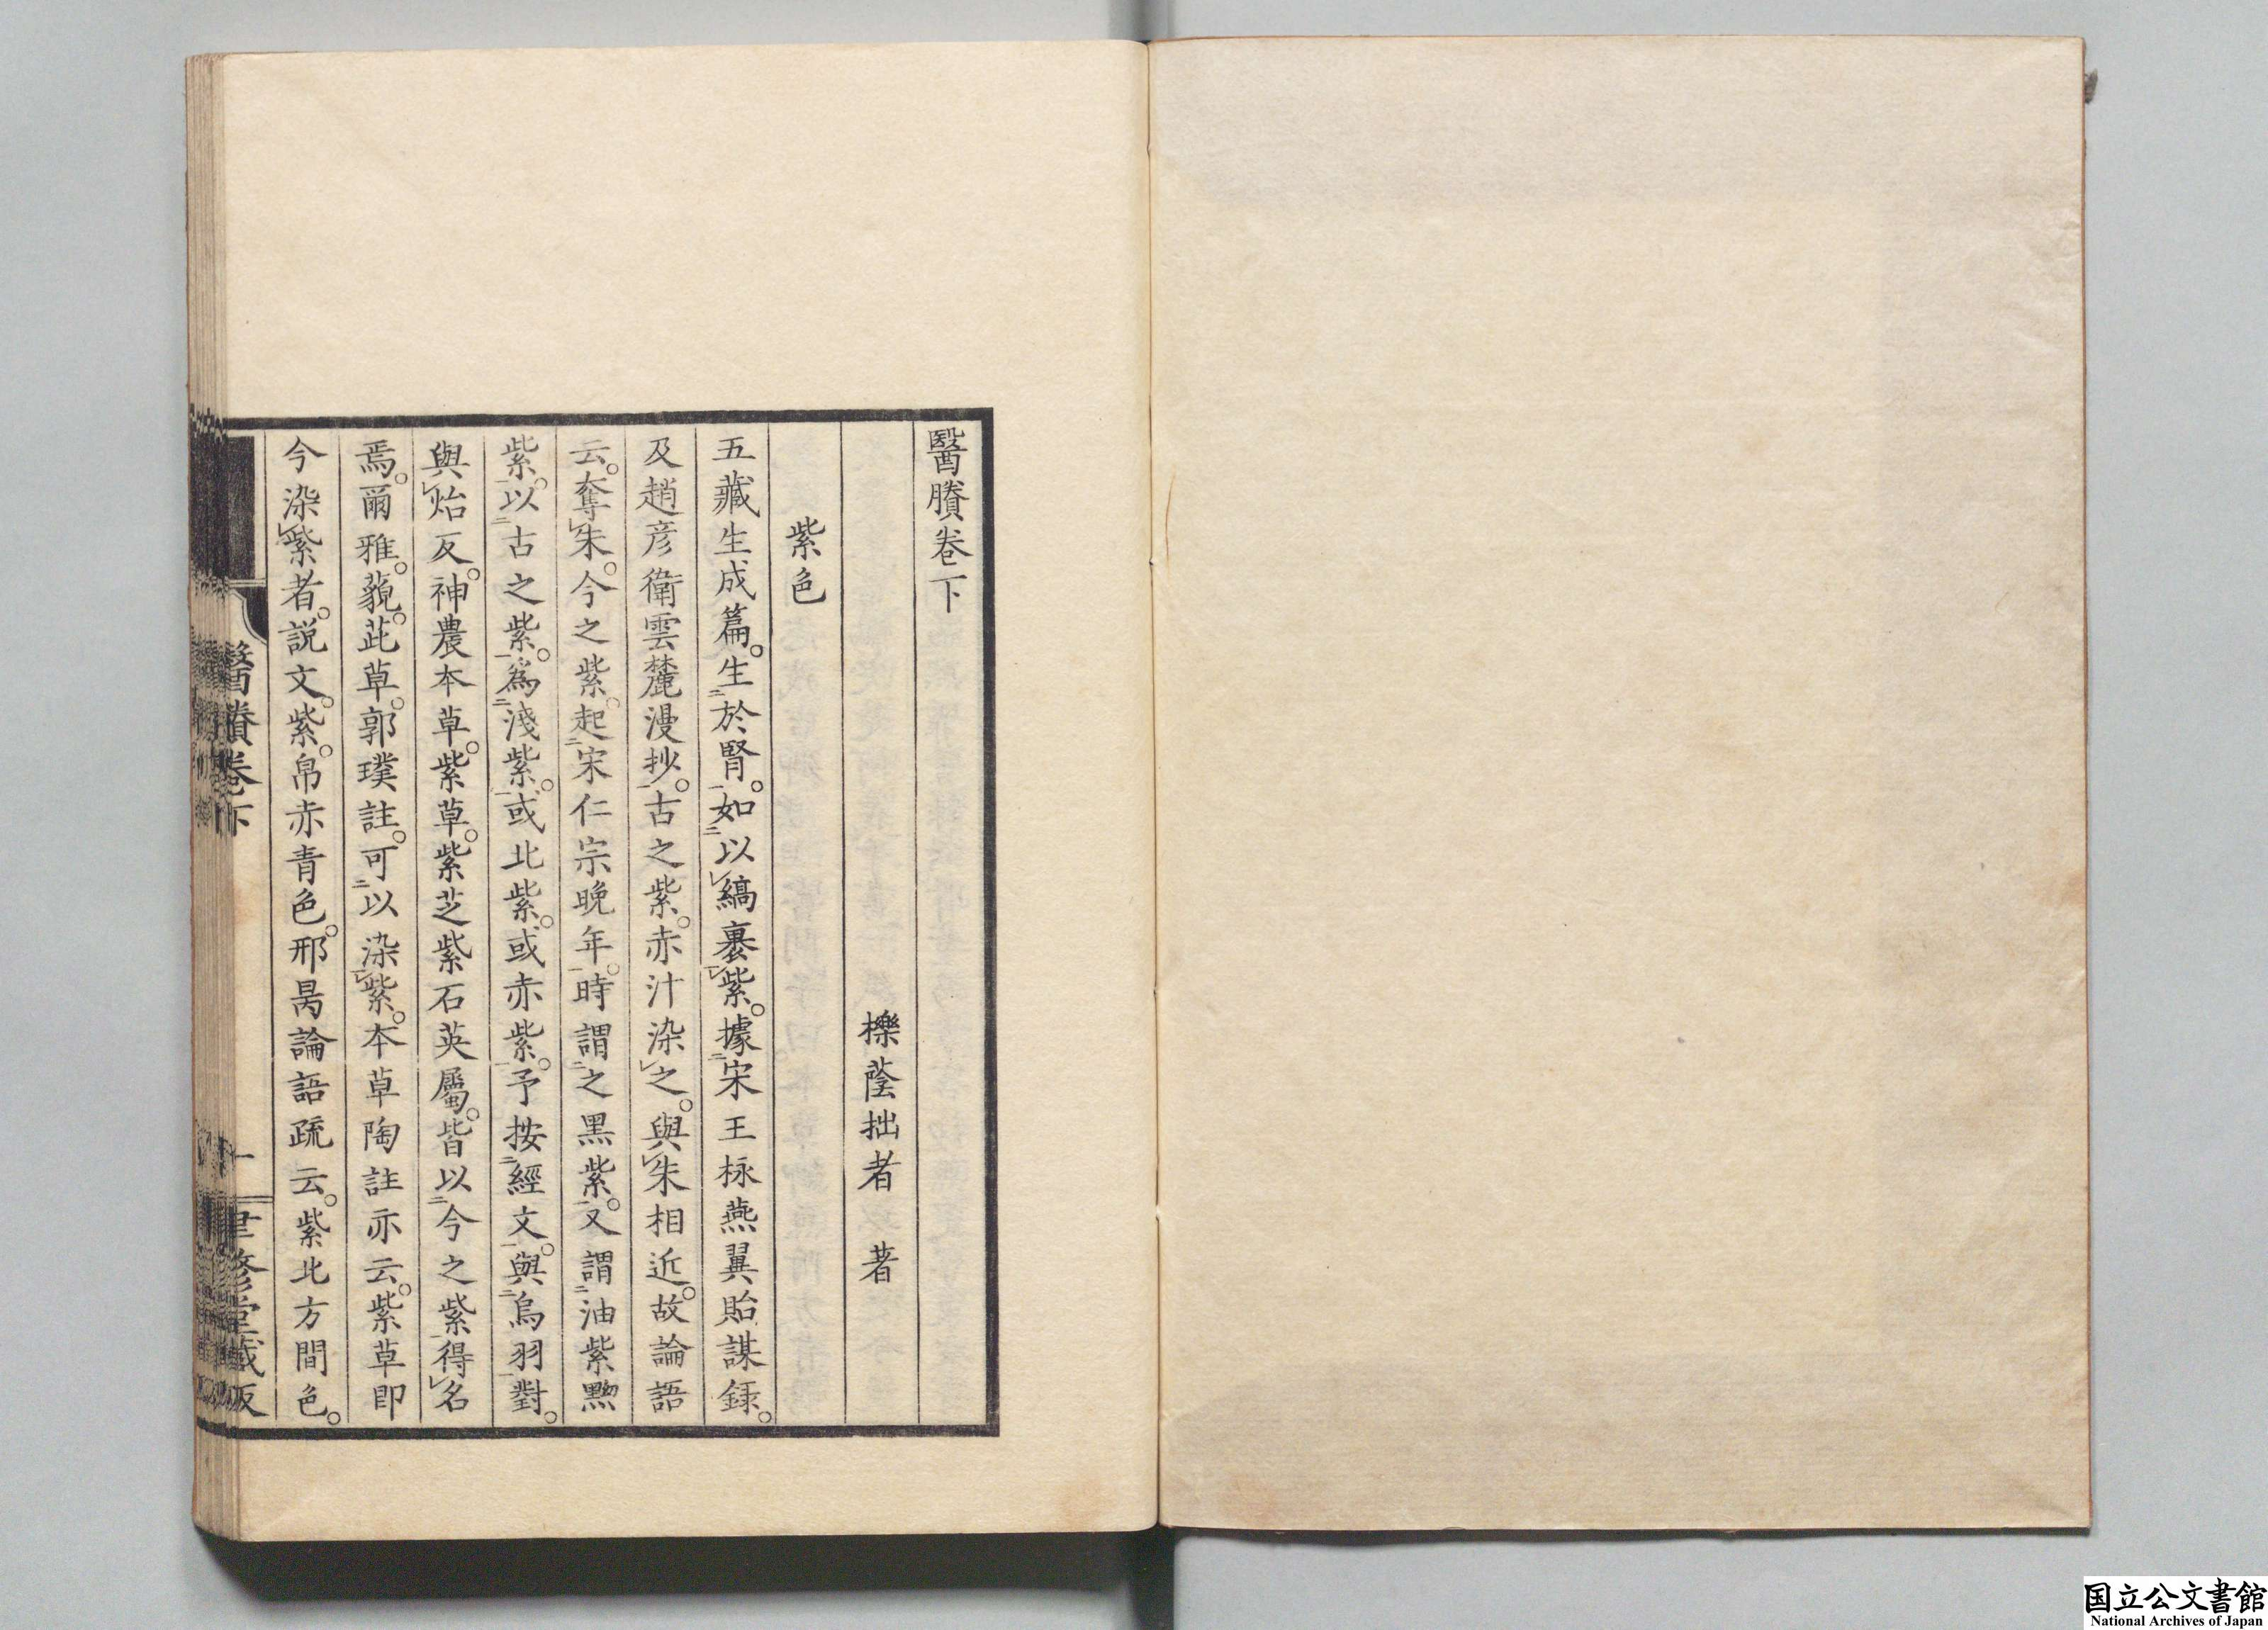 醫賸卷下
櫟蔭拙者　著
紫色
五藏生成篇。生於腎。如以縞裹紫。據宋王栐燕翼貽謀錄。
及趙彦衛雲麓漫抄。古之紫。赤汁染之。與朱相近。故論語
云。奪朱。今之紫。起宋仁宗晚年。時謂之黑紫。又謂油紫黝
紫。以古之紫。爲淺紫。或北紫。或赤紫。予按經文。與烏羽對。
與炲反。神農本草。紫草。紫芝紫石英屬。皆以今之紫得名
焉。爾雅。藐。茈草。郭璞註。可以染紫。本草陶註亦云。紫草即
今染紫者。説文。紫。帛赤青色。邢昺論語疏云。紫北方間色。
醫賸卷下
一
聿修堂藏版
国立公文書館
National Archives of Japan